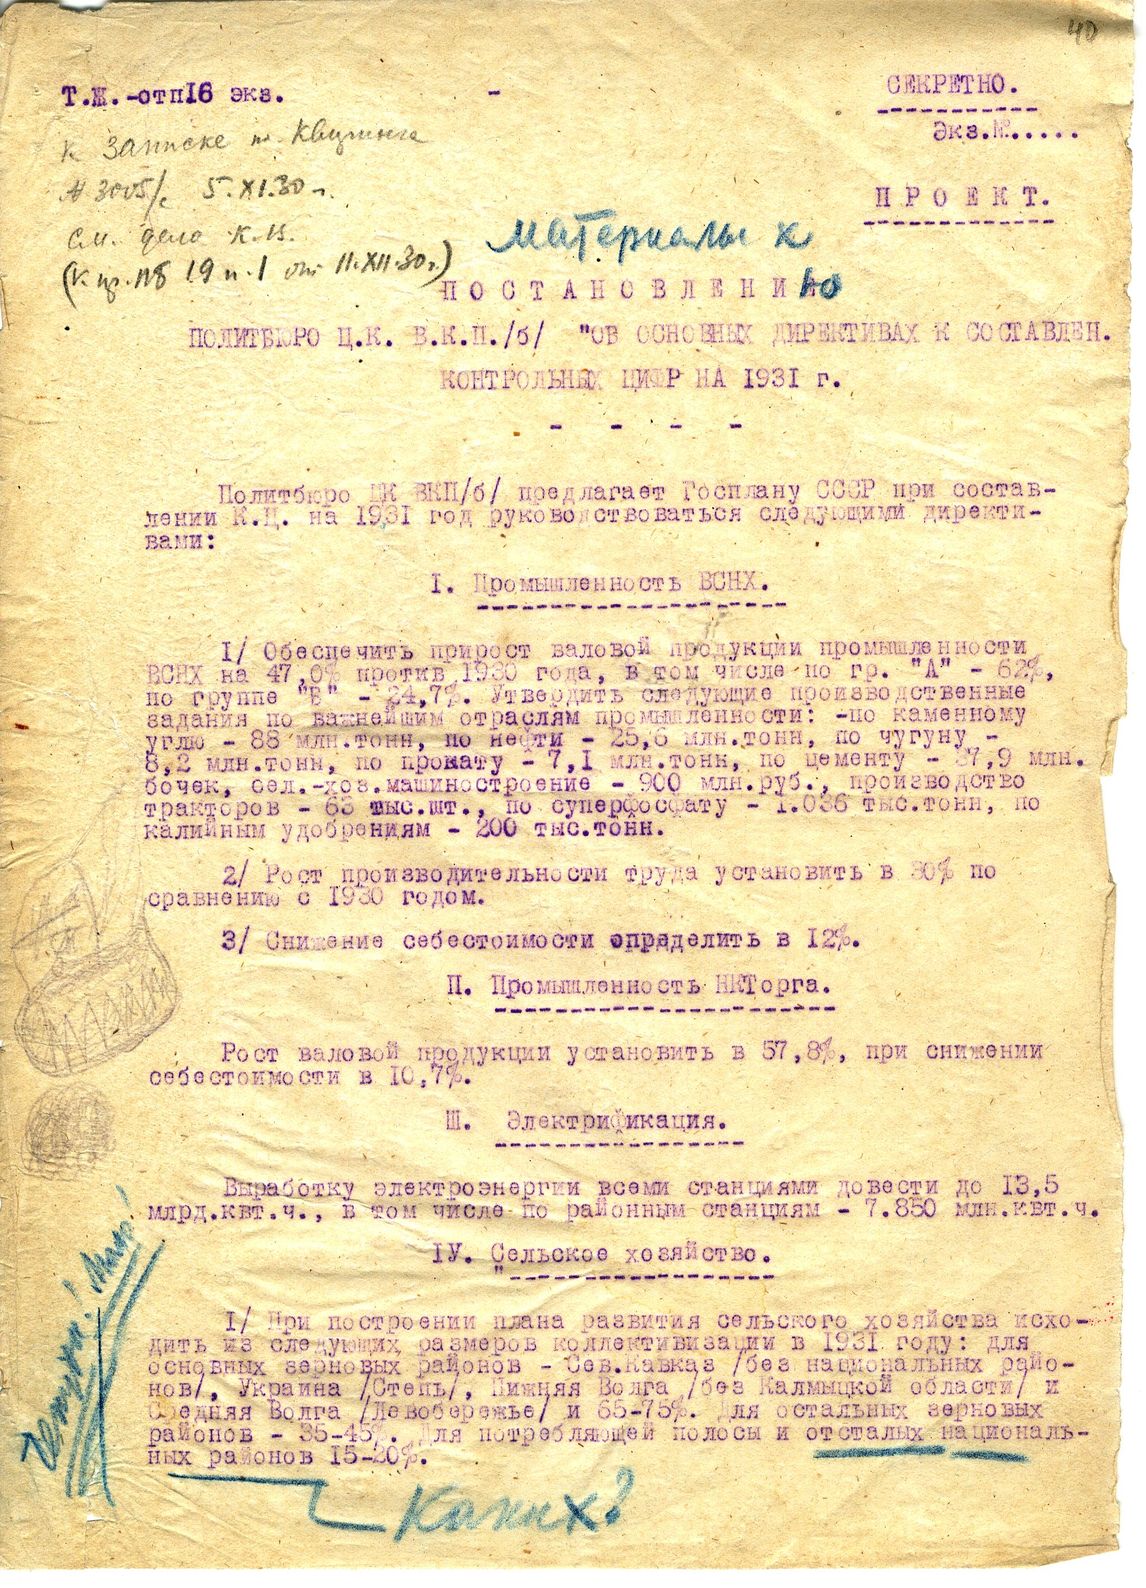 40
Т.Ж.-отп16 экз. - СЕКРЕТНО.
Экз.№.....
к записке т. Квиринга
№ 3005/с 5.XI.30 г.
ПРОЕКТ.
см. дела К.Ц.
(к пр. ПБ 19 п. 1 от 11.XII.30 г.)
материалы к
ПОСТАНОВЛЕНИЮ
ПОЛИТБЮРО Ц.К. В.К.П./б/ "ОБ ОСНОВНЫХ ДИРЕКТИВАХ К СОСТАВЛЕН.
КОНТРОЛЬНЫХ ЦИФР НА 1931 г.
- - - -
Политбюро ЦК ВКП/б/ предлагает Госплану СССР при состав-
лении К.Ц. на 1931 год руководствоваться следующими директи-
вами:
I. Промышленность ВСНХ.
I/ Обеспечить прирост валовой продукции промышленности
ВСНХ на 47,0% против 1930 года, в том числе по гр. "А" - 62%,
по группе "Б" - 24,7%. Утвердить следующие производственные
задания по важнейшим отраслям промышленности: -по каменному
углю - 88 млн.тонн, по нефти - 25,6 млн.тонн, по чугуну -
8,2 млн.тонн, по прокату - 7,1 млн.тонн, по цементу - 37,9 млн.
бочек, сел.-хоз.машиностроение - 900 млн.руб., производство
тракторов - 63 тыс.шт., по суперфосфату - 1.036 тыс.тонн, по
калийным удобрениям - 200 тыс.тонн.
2/ Рост производительности труда установить в 30% по
сравнению с 1930 годом.
3/ Снижение себестоимости определить в 12%.
П. Промышленность НКТорга.
Рост валовой продукции установить в 57,8%, при снижении
себестоимости в 10,7%.
Ш. Электрификация.
Выработку электроэнергии всеми станциями довести до 13,5
млрд.квт.ч., в том числе по районным станциям - 7.850 млн.квт.ч.
IУ. Сельское хозяйство.
I/ При построении плана развития сельского хозяйства исхо-
дить из следующих размеров коллективизации в 1931 году: для
основных зерновых районов - Сев.Кавказ /без национальных райо-
нов/, Украина /Степь/, Нижняя Волга /без Калмыцкой области/ и
Средняя Волга /Левобережье/ и 65-75%. Для остальных зерновых
районов - 35-45%. Для потребляющей полосы и отсталых националь-
ных районов 15-20%.
Каких?